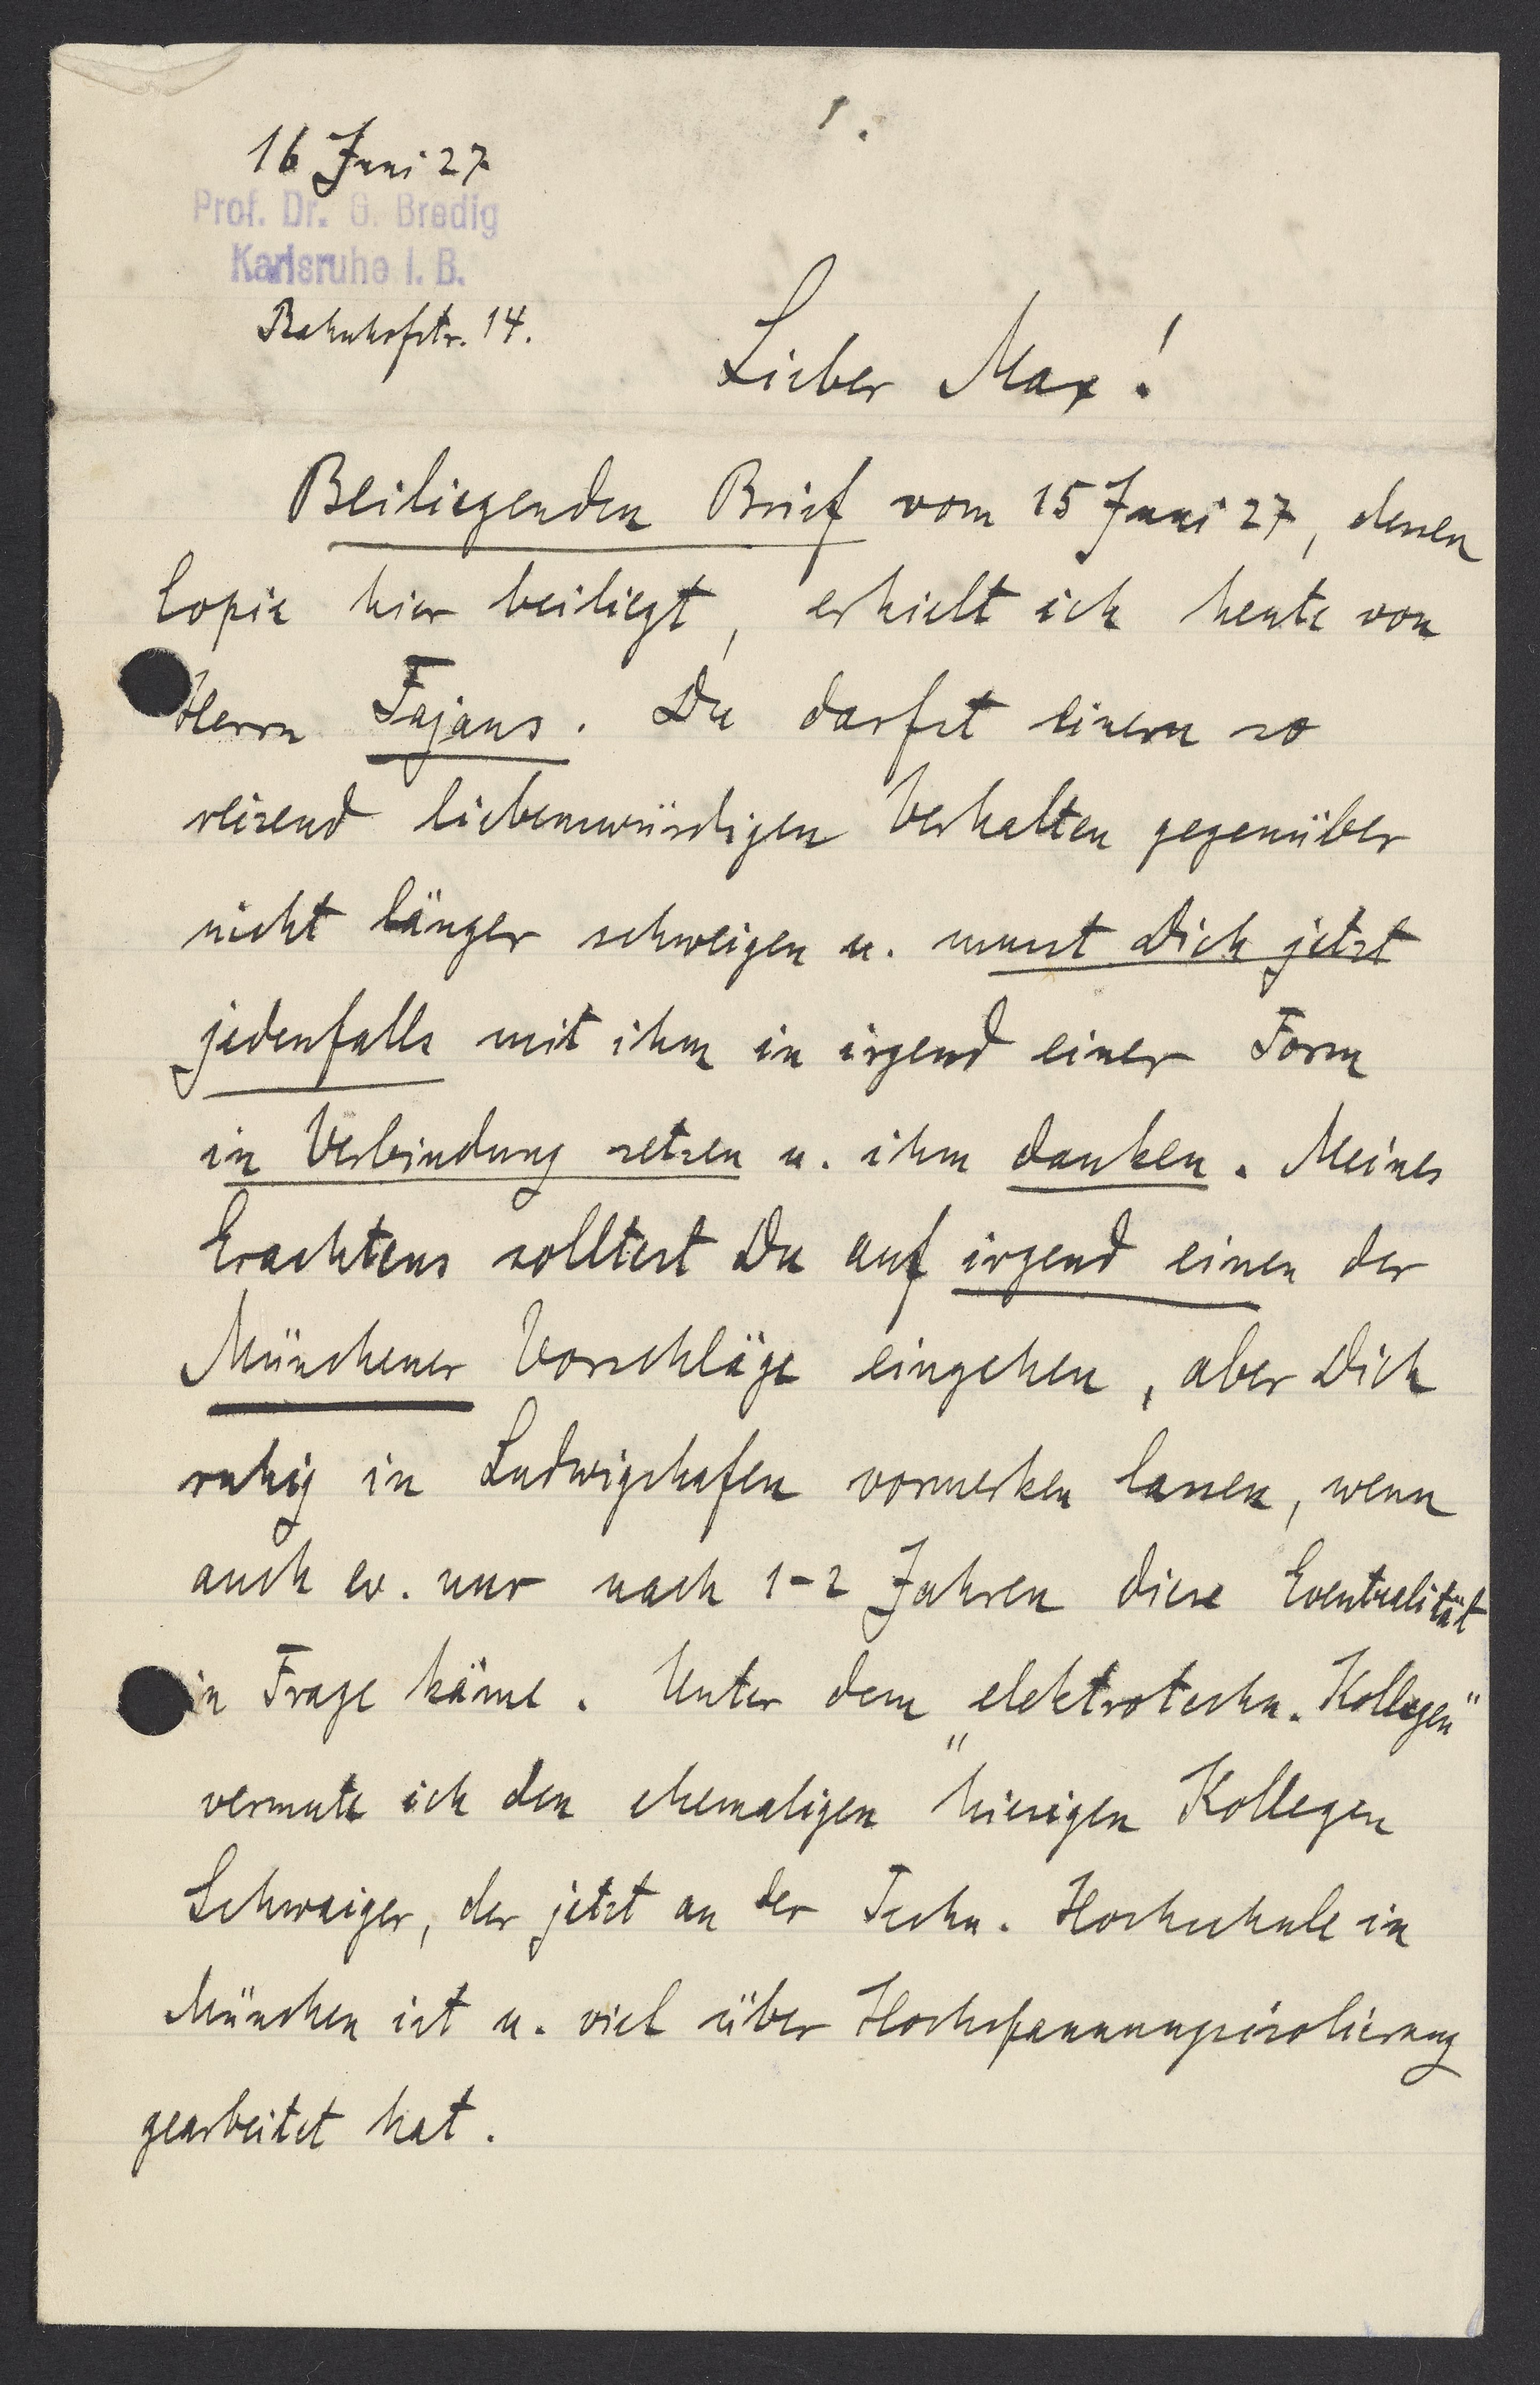 1.
16 Juni 27
Prof. Dr. G. Bredig
Karlsruhe i. B.
Bahnhofstr. 14.
Lieber Max!
Beiliegenden Brief vom 15 Juni 27, dessen
Copie hier beiliegt, erhielt ich heute von
Herrn Fajans. Du darfst einem so
reizend liebenswürdigen Verhalten gegenüber
nicht länger schweigen u. musst Dich jetzt
jedenfalls mit ihm in irgend einer Form
in Verbindung setzen u. ihm danken. Meines
Erachtens solltest Du auf irgend einen der
Münchener Vorschläge eingehen, aber Dich
ruhig in Ludwigshafen vormerken lassen, wenn
auch ev. nur nach 1-2 Jahren diese Eventualität
in Frage käme. Unter dem „elektrotechn. Kollegen"
vermute ich den ehemaligen hiesigen Kollegen
Schwaiger, der jetzt an der Techn. Hochschule in
München ist u. viel über Hochspannungsisolierung
gearbeitet hat.